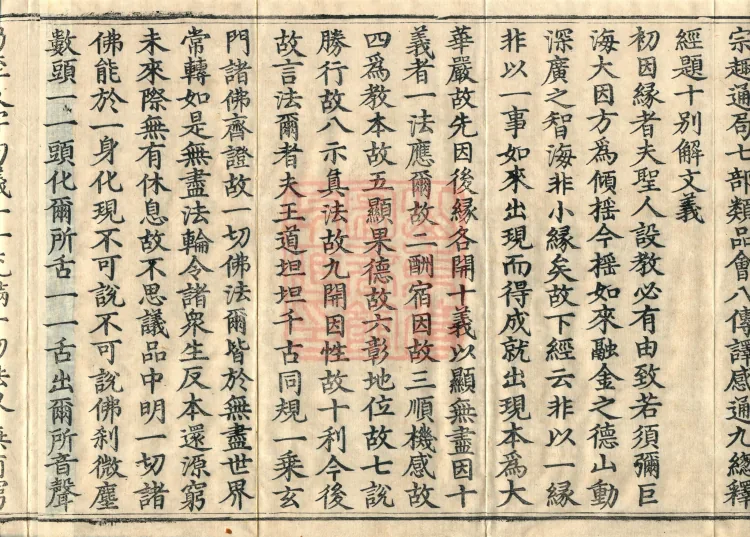 宗趣通局七部類品會八傳譯感通九總釋
經題十別解文義
初因緣者夫聖人設教必有由致若須彌巨
海大因方為傾搖今搖如來融金之德山動
深廣之智海非小緣矣故下經云非以一緣
非以一事如來出現而得成就出現本為大
華嚴故先因後緣各開十義以顯無盡因十
義者一法應爾故二酬宿因故三順機感故
四為教本故五顯果德故六彰地位故七說
勝行故八示真法故九開因性故十利今後
故言法爾者夫王道坦坦千古同規一乘玄
門諸佛齊證故一切佛法爾皆於無盡世界
常轉如是無盡法輪令諸眾生反本還源窮
未來際無有休息故不思議品中明一切諸
佛能於一身化現不可說不可說佛剎微塵
數頭一一頭化爾所舌一一舌出爾所音聲